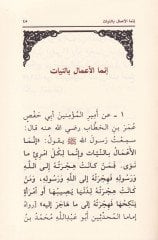 إنما الأعمال بالنيات
إنما الأعمال بالنيات
١ - عن أَمِيرِ الْمُؤْمِنِينَ أبي حَفْصٍ
عُمَرَ بْنِ الْخَطَّابِ رضي الله عنه قال:
سمعتُ رسولَ اللهِ ﷺ يقول: «إنَّمَا
الأعْمَالُ بالنِّيَّاتِ وإنَّمَا لِكُلِّ امْرِئٍ ما
نَوَى. فَمَنْ كانَتْ هِجْرَتُهُ إلَى اللهِ
وَرَسُولِهِ فَهِجْرَتُهُ إلَى اللهِ وَرَسُولِهِ، وَمَنْ
كانَتْ هِجْرَتُهُ لِدُنْيَا يُصِيبُهَا أَوِ امْرَأَةٍ
يَنْكِحُهَا فَهِجْرَتُهُ إلَى ما هَاجَرَ إليه» رواه
إماما المحدّثين أبو عبدالله مُحَمَّدُ بْنُ